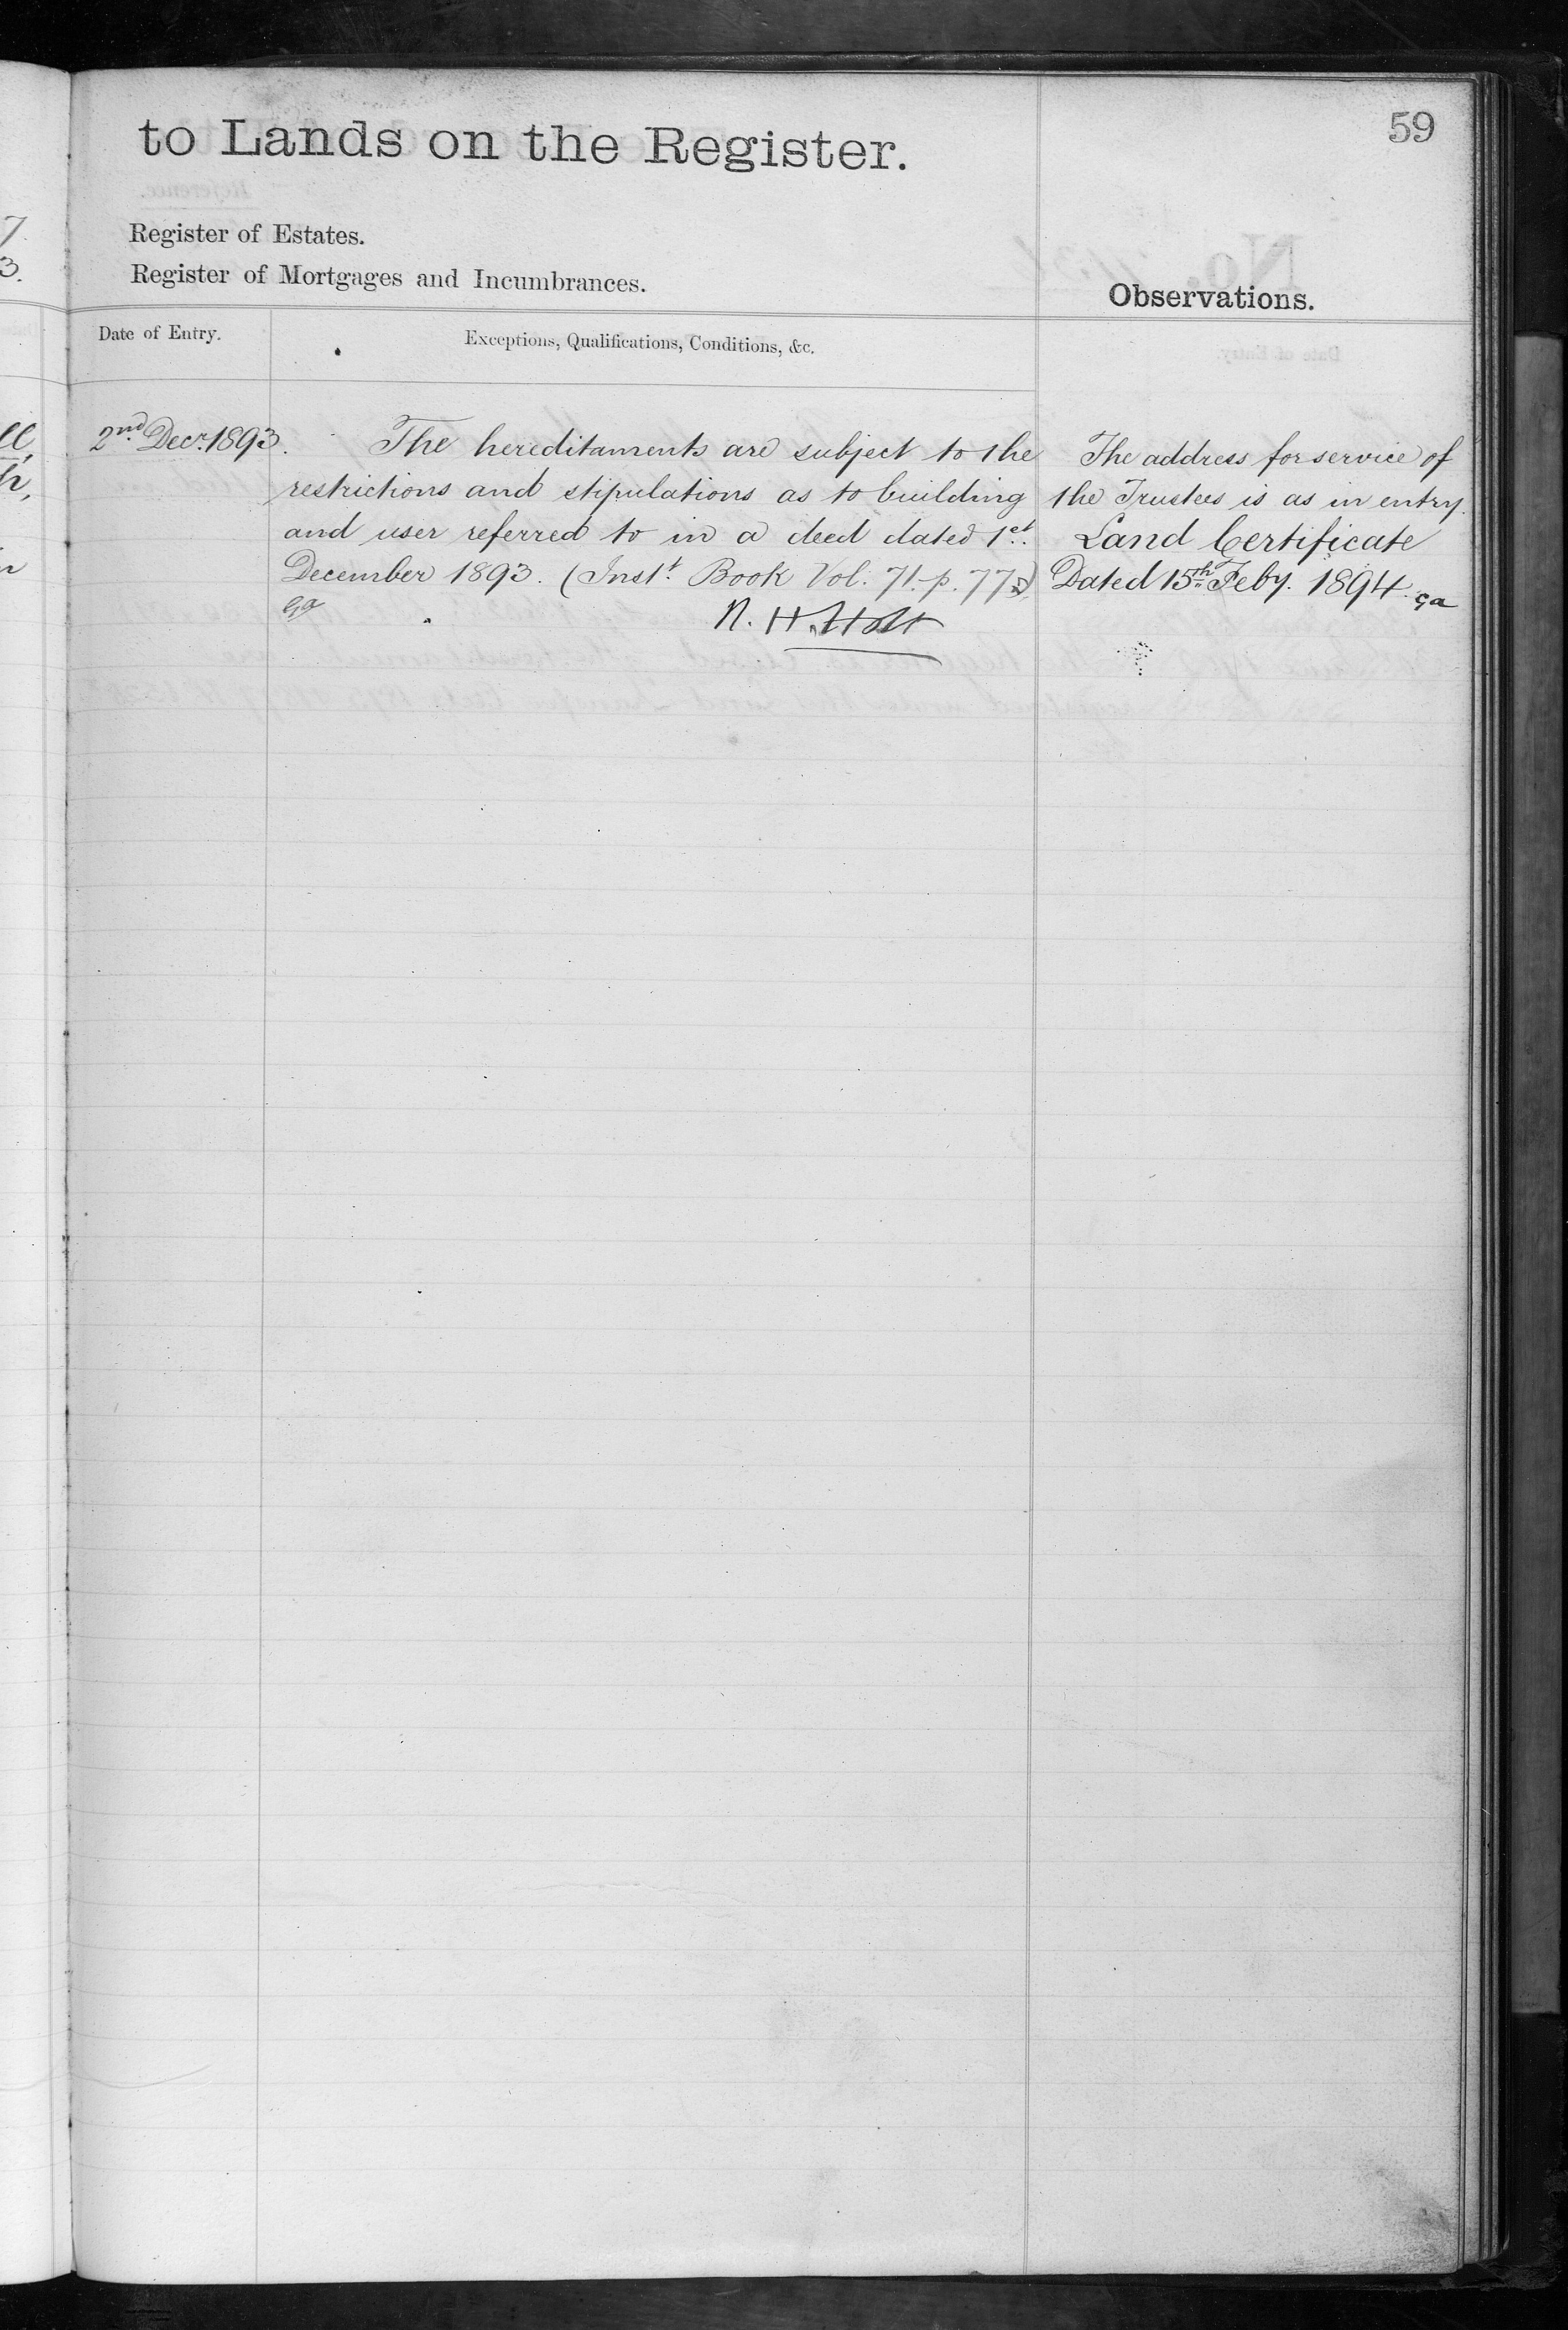 59
to Lands on the Register.
Register of Estates.
Register of Mortgages and Incumbrances.
Observations.
Date of Entry.
Exceptions, Qualifications, Conditions, &c.
2nd Decr. 1893.
The hereditaments are subject to the
restrictions and stipulations as to building
and user referred to in a deed dated 1st
December 1893. (Inst. Book Vol. 71. p. 77)
N. H. Holt
The address for service of
the Trustees is as in entry.
Land Certificate
Dated 15th Feby. 1894. ga